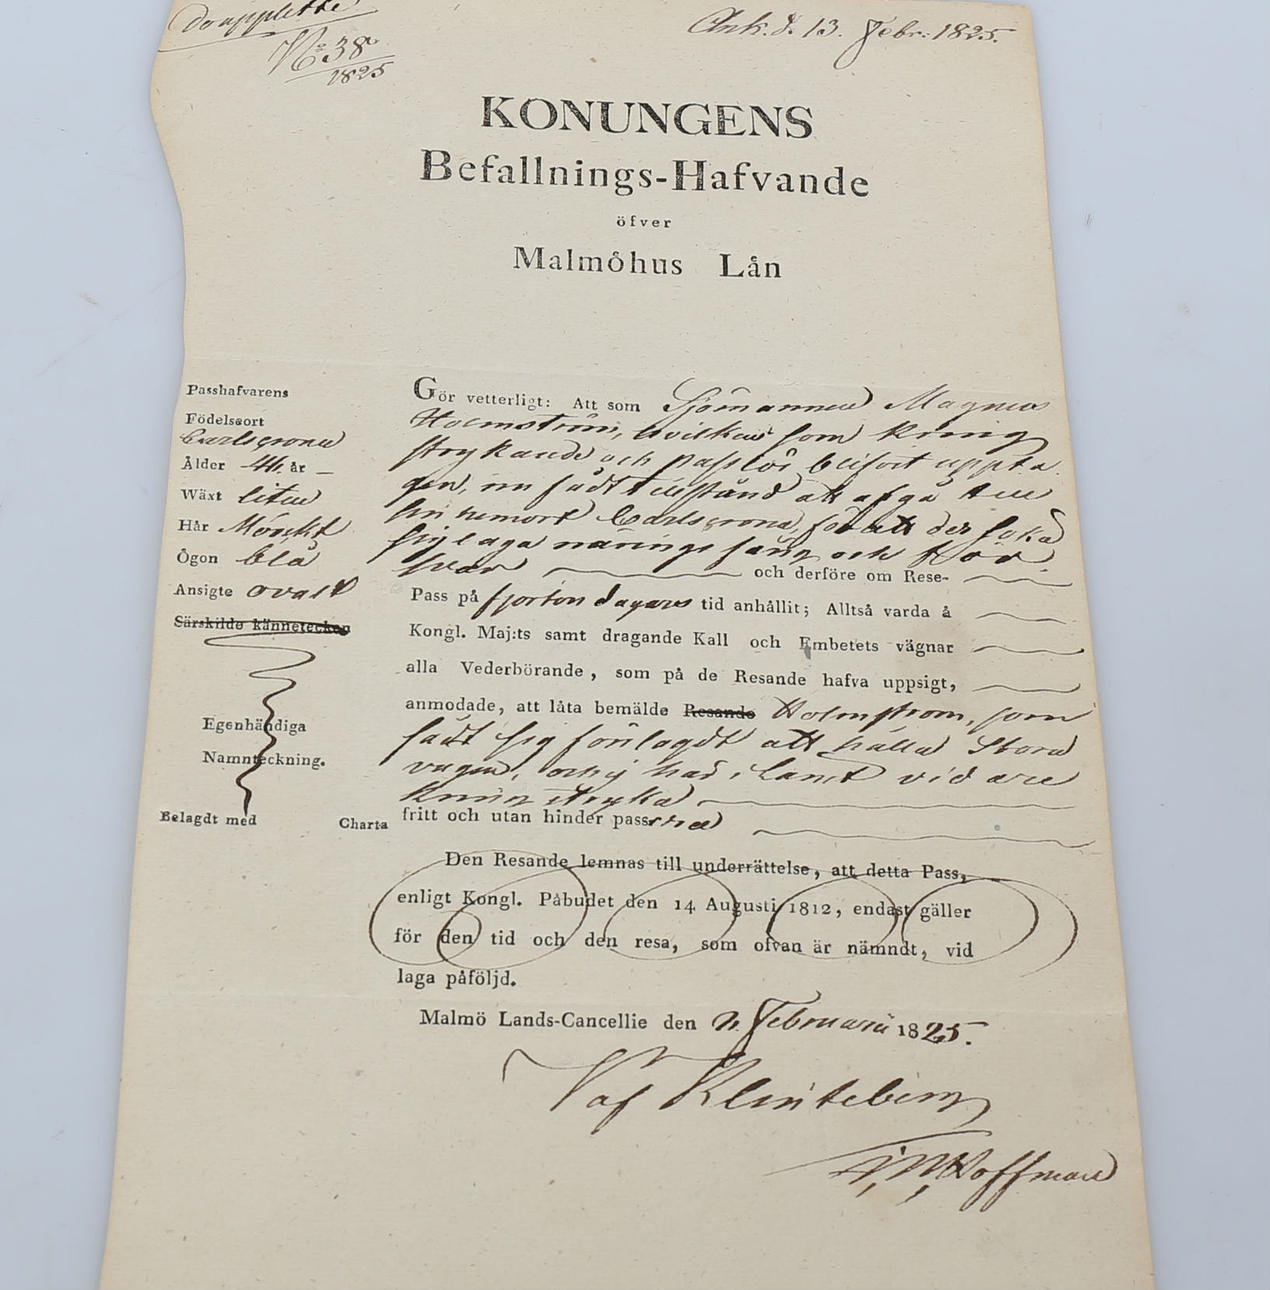 No 38
1825
Ank. d. 13. Febr: 1825.
KONUNGENS
Befallnings-Hafvande
öfver
Malmöhus Län
Passhafvarens
Födelseort
Carlscrona
Ålder 44. år
Wäxt liten
Hår Mörckt
Ögon blå
Ansigte ovalt
Särskilde kännetecken
Egenhändiga
Namnteckning.
Belagdt med Charta
Gör vetterligt: Att som Sjömannen Magnus
Holmström, hvilken som kring
strykande och passlös blifvit uppta
gen, nu fådt tillstånd att afgå till
sin hemort Carlscrona, för att der söka
sig laga näringsfång och för
svar och derföre om Rese-
Pass på fjorton dagars tid anhållit; Alltså varda å
Kongl. Maj:ts samt dragande Kall och Embetets vägnar
alla Vederbörande, som på de Resande hafva uppsigt,
anmodade, att låta bemälde Resande Holmström, som
fådt sig förelagdt att hålla Stora
vägen, och ej här i länet vidare
kringstryka
fritt och utan hinder passera
Den Resande lemnas till underrättelse, att detta Pass,
enligt Kongl. Påbudet den 14 Augusti 1812, endast gäller
för den tid och den resa, som ofvan är nämndt, vid
laga påföljd.
Malmö Lands-Cancellie den Februarii 1825.
af Klinteberg
Hoffman